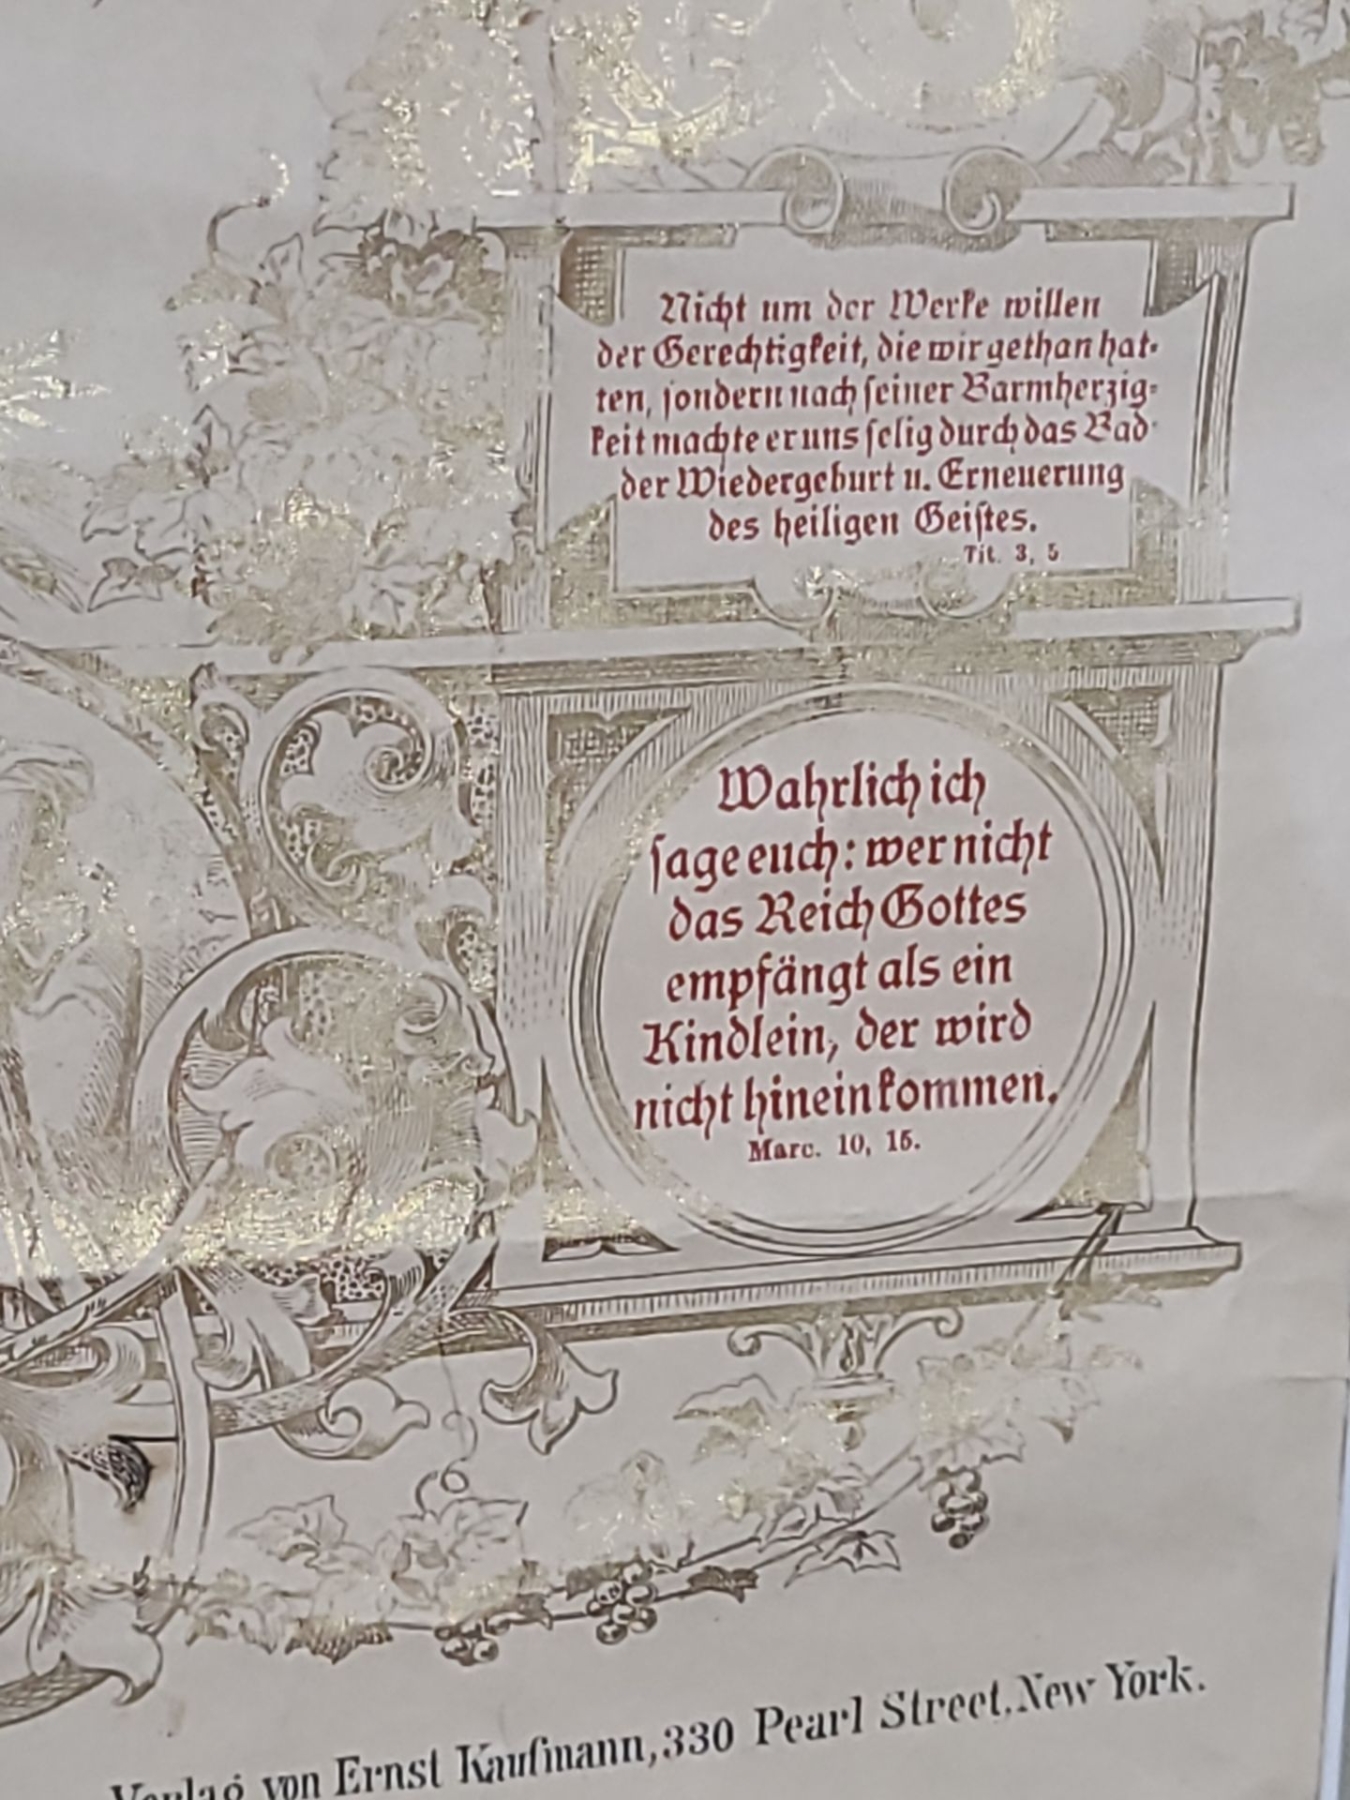 Nicht um der Werke willen
der Gerechtigkeit, die wir gethan hat-
ten, sondern nach seiner Barmherzig-
keit machte er uns selig durch das Bad
der Wiedergeburt u. Erneuerung
des heiligen Geistes.
Tit. 3, 5
Wahrlich ich
sage euch: wer nicht
das Reich Gottes
empfängt als ein
Kindlein, der wird
nicht hineinkommen.
Marc. 10, 15.
Verlag von Ernst Kaufmann, 330 Pearl Street, New York.